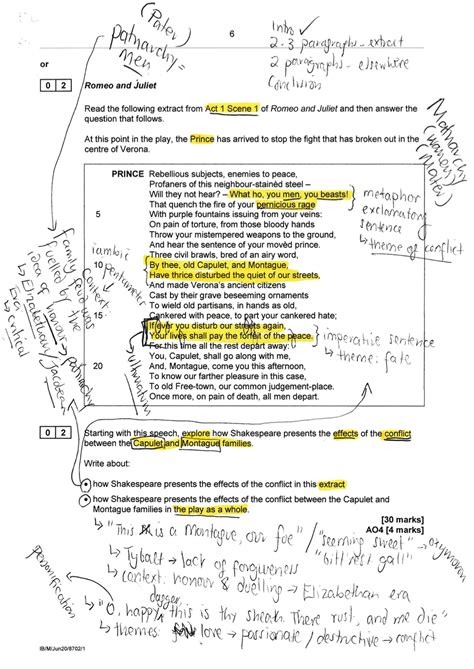 (Pater)
patriarchy =
men
6
Intro ✓
2-3 paragraphs - extract
2 paragraphs - elsewhere
Conclusion
or
0 2 Romeo and Juliet
Read the following extract from Act 1 Scene 1 of Romeo and Juliet and then answer the
question that follows.
At this point in the play, the Prince has arrived to stop the fight that has broken out in the
centre of Verona.
Matriarchy
(Mater)
PRINCE Rebellious subjects, enemies to peace,
Profaners of this neighbour-stainèd steel –
Will they not hear? – What ho, you men, you beasts!
That quench the fire of your pernicious rage
5 With purple fountains issuing from your veins:
On pain of torture, from those bloody hands
Throw your mistempered weapons to the ground,
And hear the sentence of your movèd prince.
Three civil brawls, bred of an airy word,
10 By thee, old Capulet, and Montague,
Have thrice disturbed the quiet of our streets,
And made Verona's ancient citizens
Cast by their grave beseeming ornaments
To wield old partisans, in hands as old,
15 Cankered with peace, to part your cankered hate;
If ever you disturb our streets again,
Your lives shall pay the forfeit of the peace.
For this time all the rest depart away:
You, Capulet, shall go along with me,
20 And, Montague, come you this afternoon,
To know our farther pleasure in this case,
To old Free-town, our common judgement-place.
Once more, on pain of death, all men depart.
metaphor
exclamatory
sentence
↳ theme of conflict
iambic
pentameter
imperative sentence
↳ theme: fate
↳ ultimatum
family feud
fuelled by the
idea of honour
↳ Elizabethan/Jacobean
Era
context
patriarchy
0 2 Starting with this speech, explore how Shakespeare presents the effects of the conflict
between the Capulet and Montague families.
Write about:
• how Shakespeare presents the effects of the conflict in this extract
• how Shakespeare presents the effects of the conflict between the Capulet and
Montague families in the play as a whole.
[30 marks]
AO4 [4 marks]
↳ "This is a Montague, our foe" / "seeming sweet" → oxymoron
"bitt'rest gall"
↳ Tybalt → lack of forgiveness
↳ context: honour & duelling → Elizabethan era
personification
dagger,
↳ "O, happy this is thy sheath. There rust, and me die"
↳ themes: love → passionate / destructive → conflict
IB/M/Jun20/8702/1